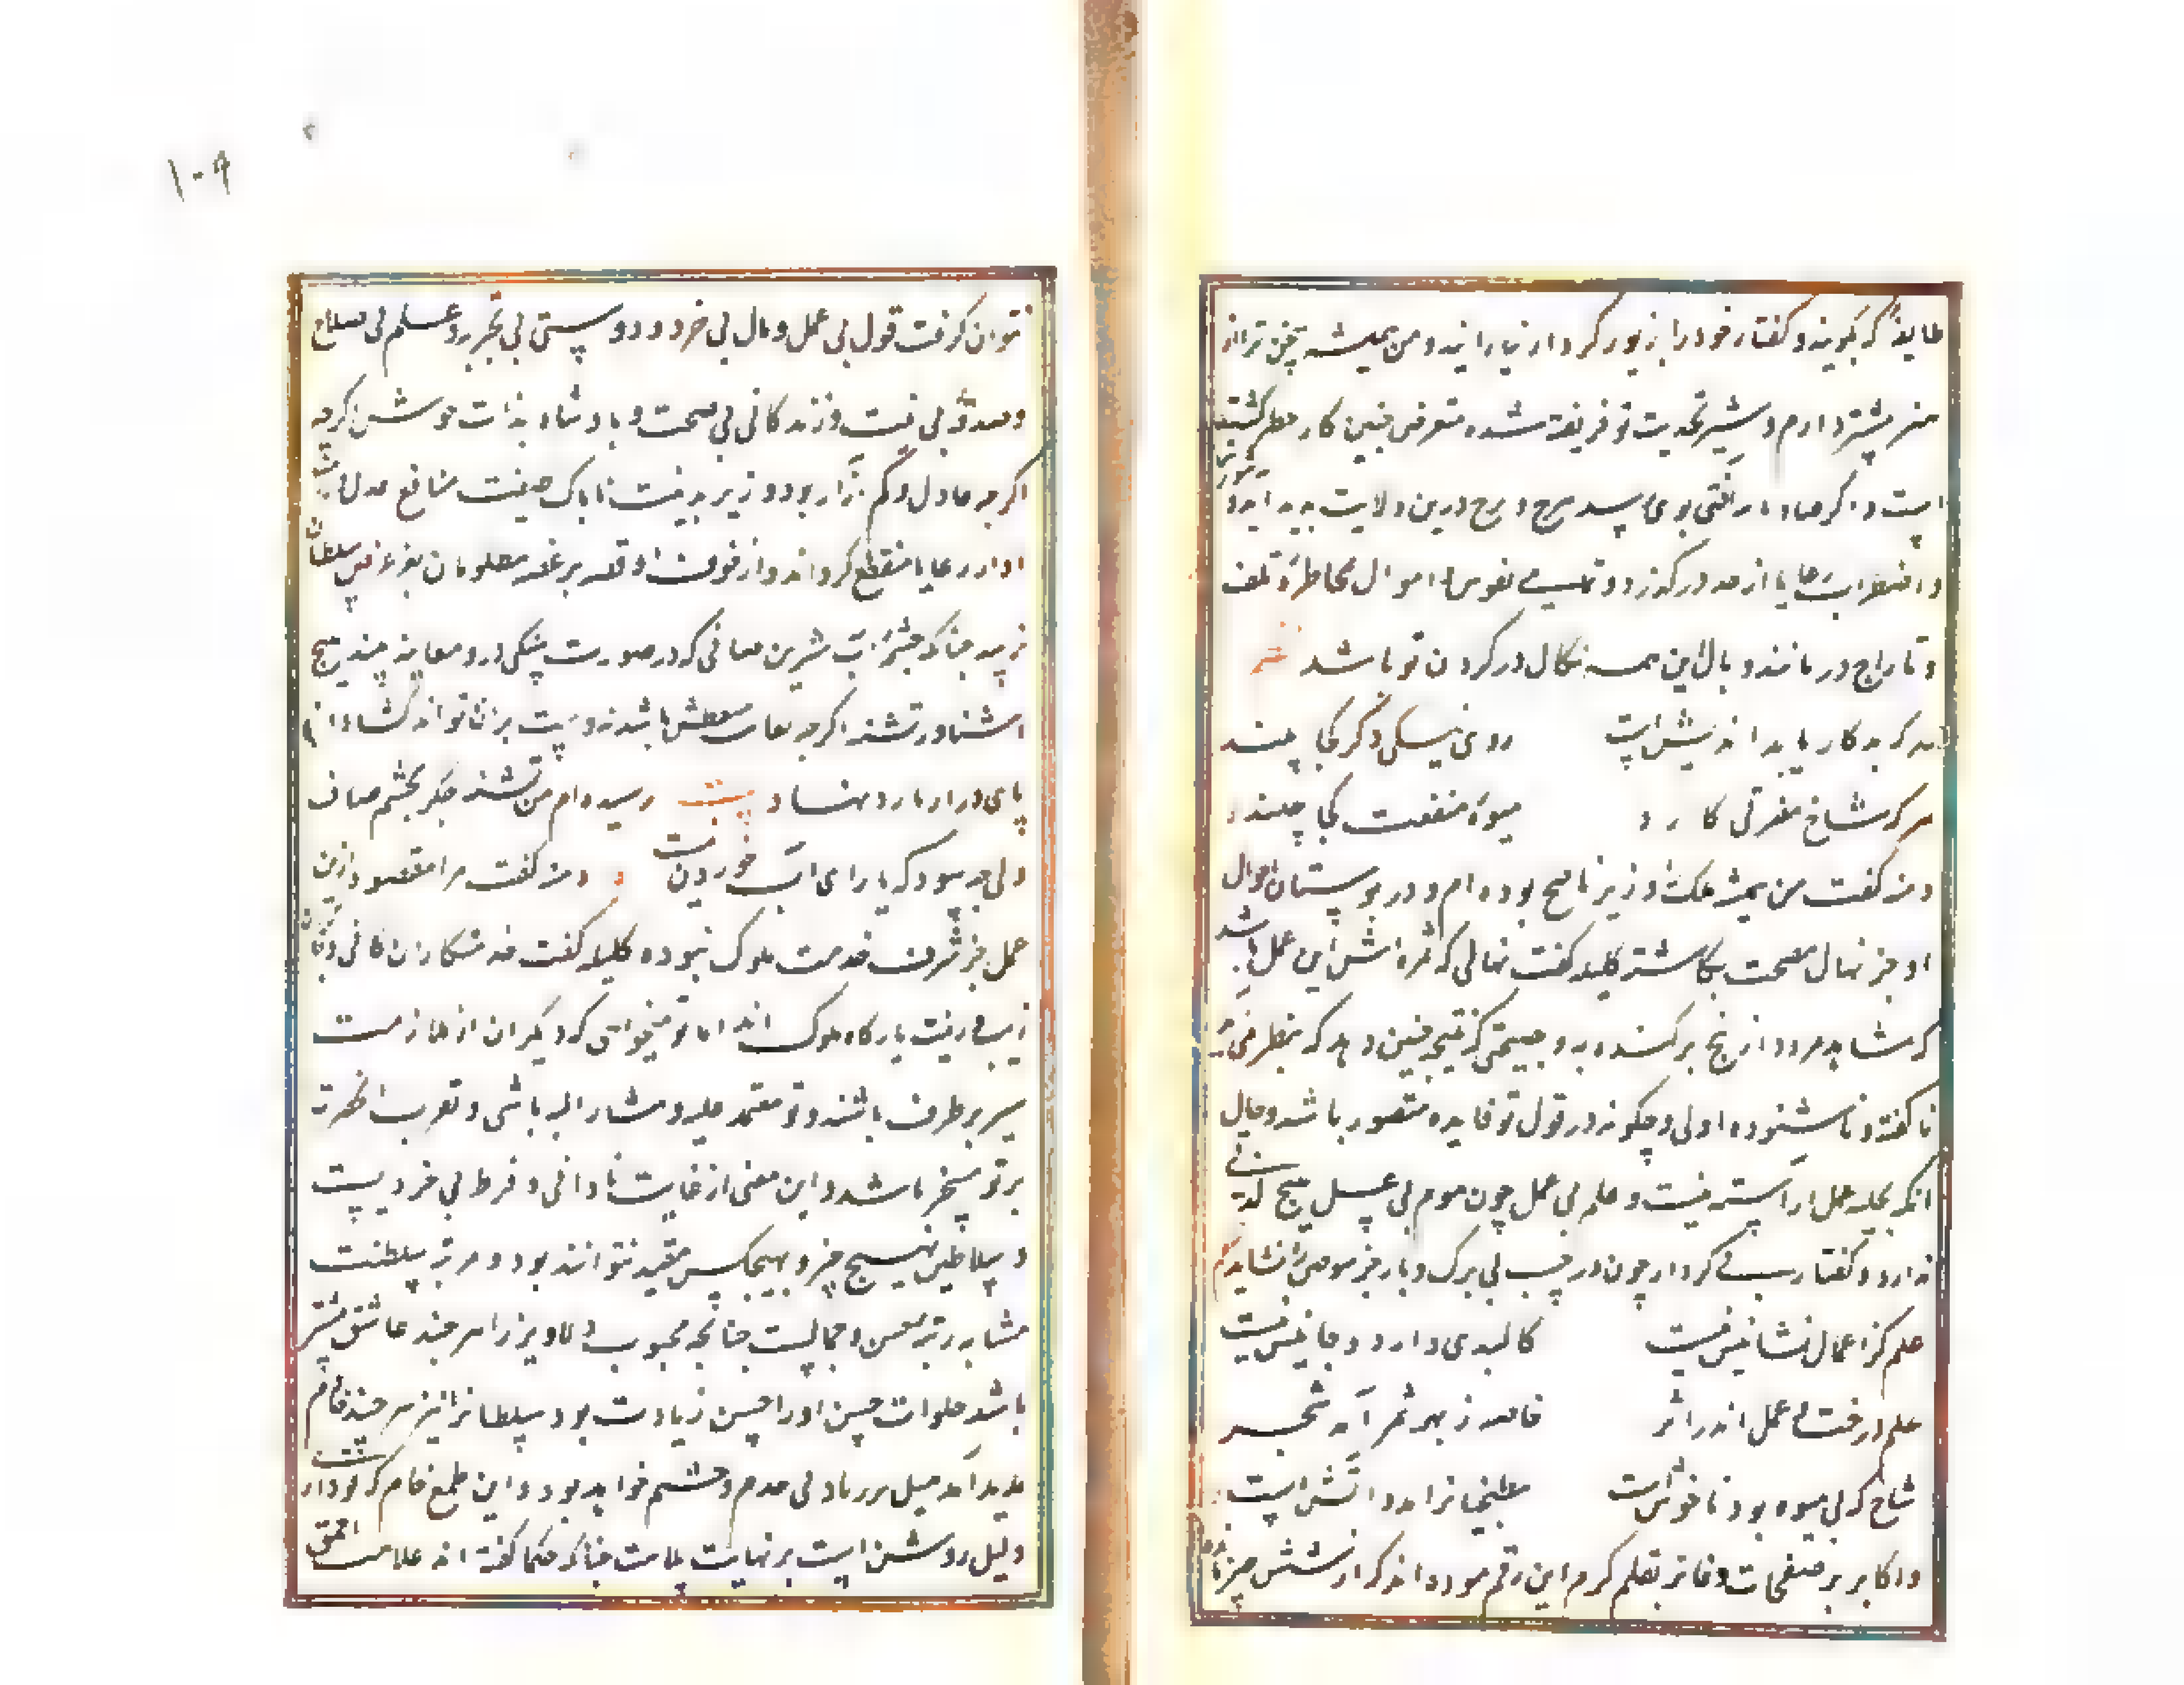 طایفهٔ که بگویند و گفتار خود را بزیور کردار نیارایند و من همیشه سخن ترا از
هنر بیشتر دارم و شیر بحدیث تو فریفته شده متعرض چنین کار خطر گشته
است و اگر عیاذا بالله آفتی بوی رسد هرج و مرج درین ولایت پدید آید و شورش
و اضطراب رعایا از حد درگذرد و نفوس و اموال بمخاطرهٔ تلف
و تاراج درمانند و وبال این همه نکال در گردن تو باشد شعر
هر که بدکار یا بد اندیش است روی نیکی دگر کجا بیند
هر که شاخ مضرتی کارد میوهٔ منفعت کجا چیند
دمنه گفت من همیشه ملک را وزیر ناصح بوده‌ام و در بوستان احوال
او جز نهال نصیحت نکاشته کلیله گفت نهالی که ثمره‌اش این عمل باشد
که مشاهده میرود از بیخ برکنده به و نصیحتی که نتیجه چنین دهد که بنظر می‌آید
ناگفته و ناشنوده اولی و چگونه در قول تو فایده متصور باشد و حال
آنکه بحلیه عمل آراسته نیست و علم بی عمل چون موم بی عسل هیچ لذتی
ندارد و گفتار بی کردار چون درخت بی برگ و بار جز سوختن را نشاید نظم
علم کز اعمال نشانیش نیست کالبدی دارد و جانیش نیست
علم درخت و عمل اندر اثر خاصه ز بهر ثمر آمد شجر
شاخ که بی میوه بود ناخوش است مطبخیانرا مدد آتش است
و اکابر بر صفحات دفاتر بقلم کرم این رقم نموده‌اند که از شش چیز فایده
نتوان گرفت قول بی عمل و مال بی خرد و دوستی بی تجربه و علم بی صلاح
و صدقهٔ بی نیت و زندگانی بی صحت و پادشاه بذات خویش اگرچه
اگرچه عادل و کم آزار بود وزیر بدنیت ناپاک صفت منافع عدل و رأفت
او از رعایا منقطع گرداند و از خوف او قصه پر غصه مظلومان بعرض سلطان
نرسد چنانکه چشمهٔ آب شیرین صافی که در صورت نهنگی درو معاینه بیند هیچ
آشناور تشنه اگرچه بغایت متعطش باشد نه دست بدان تواند گشاد و نه
پای در او یارد نهاد بیت رسیده‌ام من تشنه جگر بچشم صاف
ولی چه سود که یارای آب خوردن نیست دمنه گفت مرا مقصود ازین
عمل جز شرف خدمت ملوک نبوده کلیله گفت خدمتکاران کافی و چاکران
زیب و زینت بارگاه ملوک‌اند اما تو میخواهی که دیگران از ملازمت
شیر برطرف باشند و تو معتمد علیه و مشار الیه باشی و تقرب آنحضرت
بر تو منحصر باشد و این معنی از غایت نادانی و فرط بی خردیست
و سلاطین بهیچ چیز و بهیچکس مقید نتوانند بود و مرتبه سلطنت
مشابه رتبه حسن و جمالیست چنانچه محبوب دلاویز را هر چند عاشق بیشتر
باشد جلوات حسن او را حسن زیادت بود سلطانرا نیز هر چند خادم
پدید آمد میل بزیادتی خدم و حشم خواهد بود و این طمع خام که تو داری
دلیل روشن است بر نهایت بلاهت چنانکه حکما گفته‌اند علامت احمق
۱۰۹